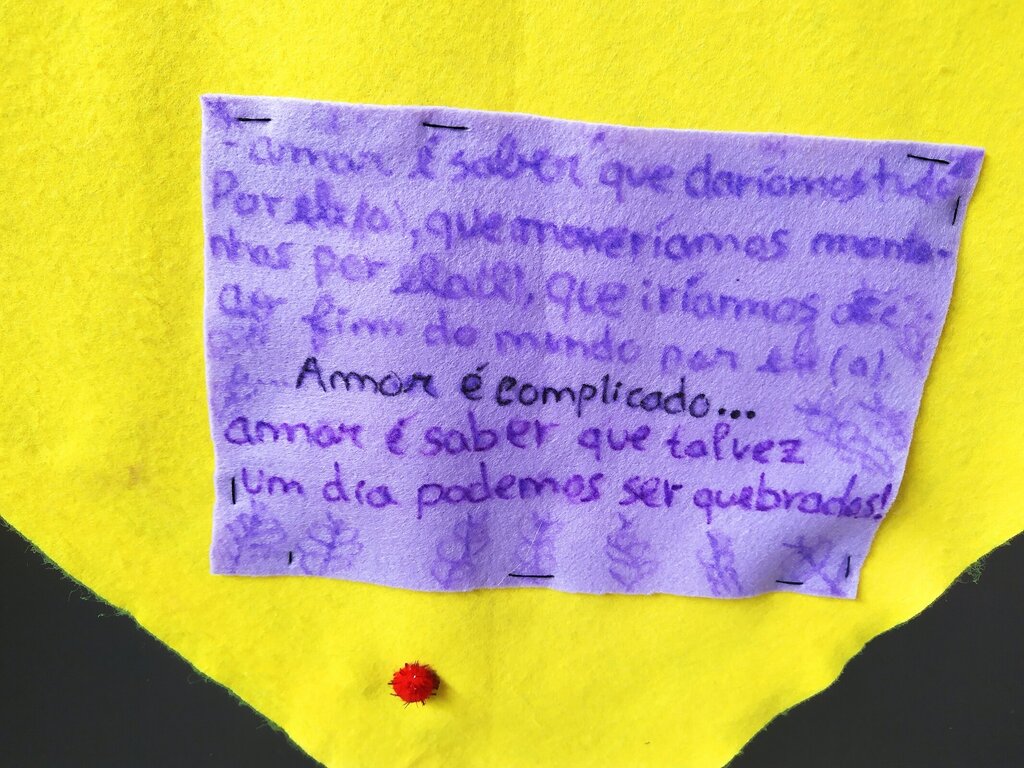 - amar é saber que daríamos tudo
Por ele(a), que moveríamos monta-
nhas por ela(e), que iríarmos até
ao fim do mundo por ele(a).
Amor é complicado...
amar é saber que talvez
um dia podemos ser quebrados!